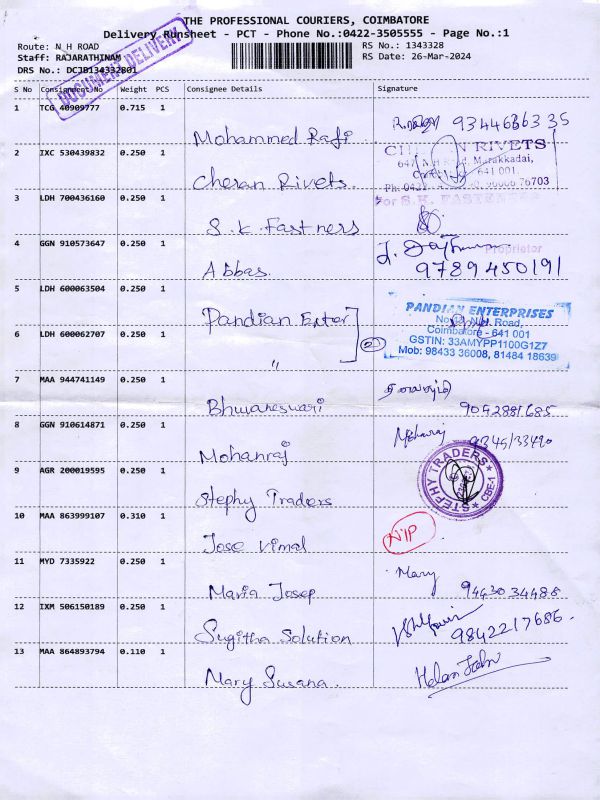 THE PROFESSIONAL COURIERS, COIMBATORE
Delivery Runsheet - PCT - Phone No.:0422-3505555 - Page No.:1
Route: N H ROAD
RS No.: 1343328
Staff: RAJARATHINAM
RS Date: 26-Mar-2024
DRS No.: DCJB134332801
DOCUMENT DELIVERY
S No Consignment No Weight PCS Consignee Details Signature
1 TCG 40909777 0.715 1
Mohammed Rafi 9344686335
2 IXC 530439832 0.250 1
Cheran Rivets.
RIVETS
Marakkadai,
641 001.
76703
3 LDH 700436160 0.250 1
For S.K. FASTENERS
S.K. Fastners
4 GGN 910573647 0.250 1
Proprietor
Abbas. 9789450191
5 LDH 600063504 0.250 1
Pandian Enter
6 LDH 600062707 0.250 1
" 2
PANDIAN ENTERPRISES
Road,
Coimbatore - 641 001
GSTIN: 33AMYPP1100G1Z7
Mob: 98433 36008, 81484 18639
7 MAA 944741149 0.250 1
Bhuvaneswari 9092881685
8 GGN 910614871 0.250 1
Mohanraj 9345133490
9 AGR 200019595 0.250 1
Stephy Traders
STEPHY TRADERS
CBE-1
10 MAA 863999107 0.310 1
Jose Vimal
NIP
11 MYD 7335922 0.250 1
Mary
Maria Josep 9443034488
12 IXM 506150189 0.250 1
Sugitha Solution 9842217686.
13 MAA 864893794 0.110 1
Mary Susana.
Helen